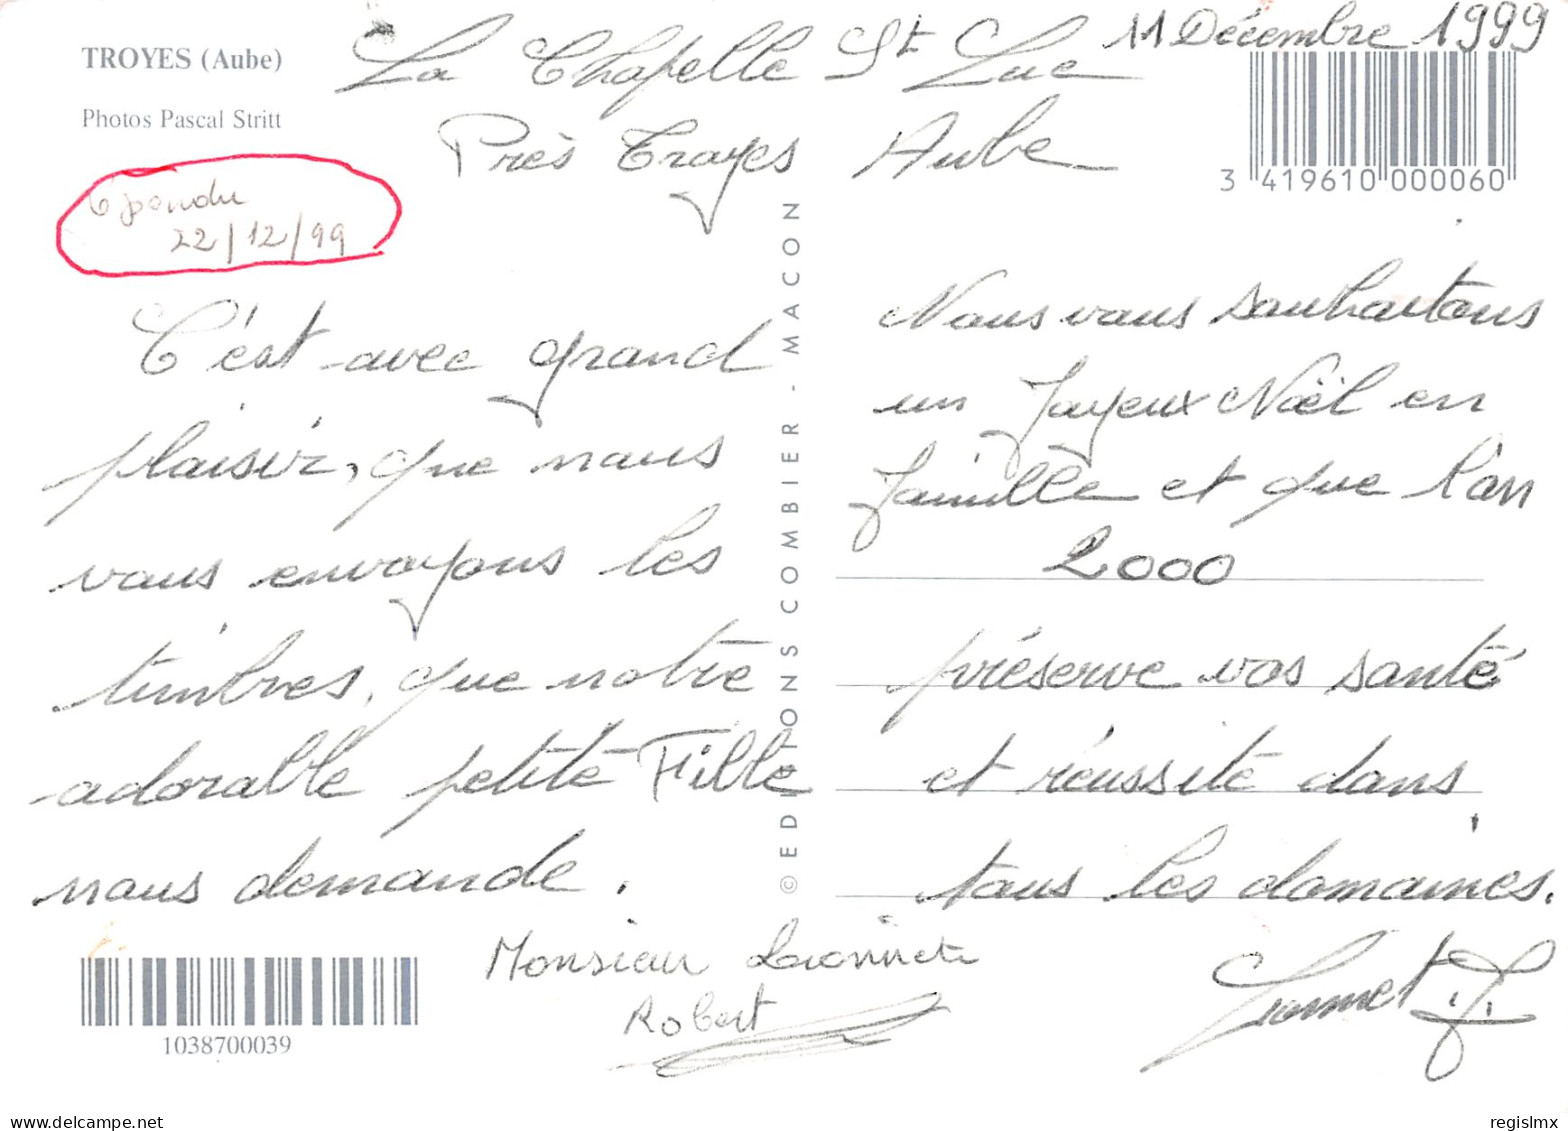 TROYES (Aube)
Photos Pascal Stritt
La Chapelle St Luc 11 Décembre 1999
Près Troyes Aube
3 419610 000060
répondu
22/12/99
C'est avec grand
plaisir, que nous
vous envoyons les
timbres, que notre
adorable petite Fille
nous demande.
Monsieur Lionnet
Robert
1038700039
© EDITIONS COMBIER - MACON
Nous vous souhaitons
un Joyeux Noël en
famille et que l'an
2000
préserve vos santé
et réussite dans
tous les domaines.
Lionnet
regislmx